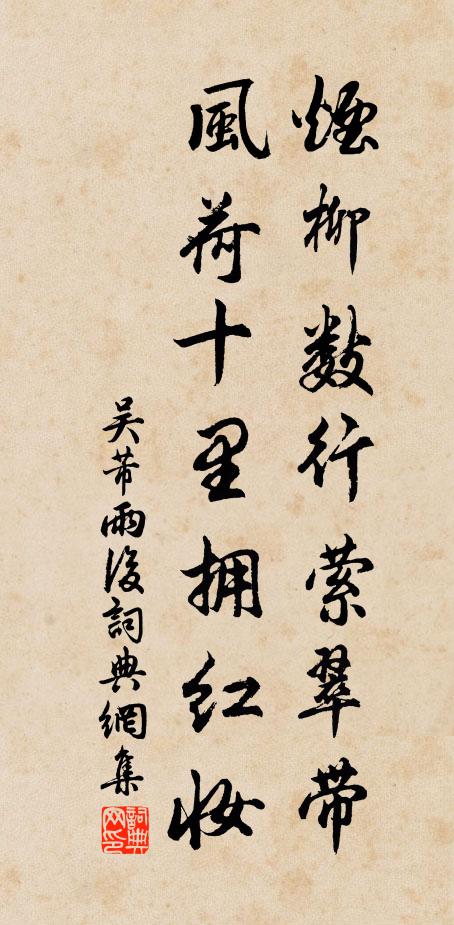 煙柳数行萦翠带
風荷十里拥红妆
吴芾雨後詞典網集
詞典網印